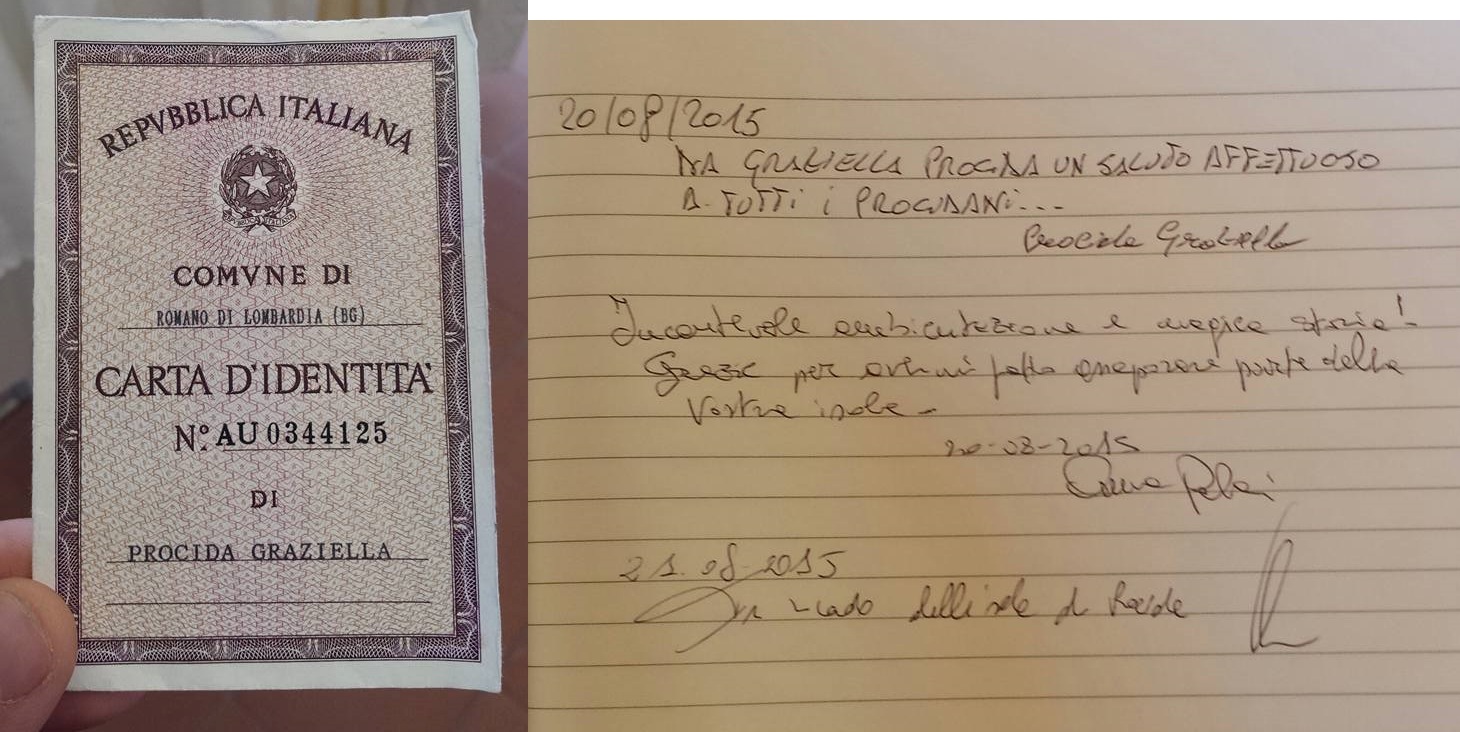 REPVBBLICA ITALIANA
REPVBBLICA ITALIANA
COMVNE DI
ROMANO DI LOMBARDIA (BG)
CARTA D'IDENTITA'
N° AU 0344125
DI
PROCIDA GRAZIELLA
20/08/2015
DA GRAZIELLA PROCIDA UN SALUTO AFFETTUOSO
A TUTTI i PROCIDANi...
Procida Graziella
Incantevole ambientazione e magica storia!
Grazie per avermi fatto assaporare parte della
Vostra isola -
20-08-2015
21.08.2015
dell'isola di Procida